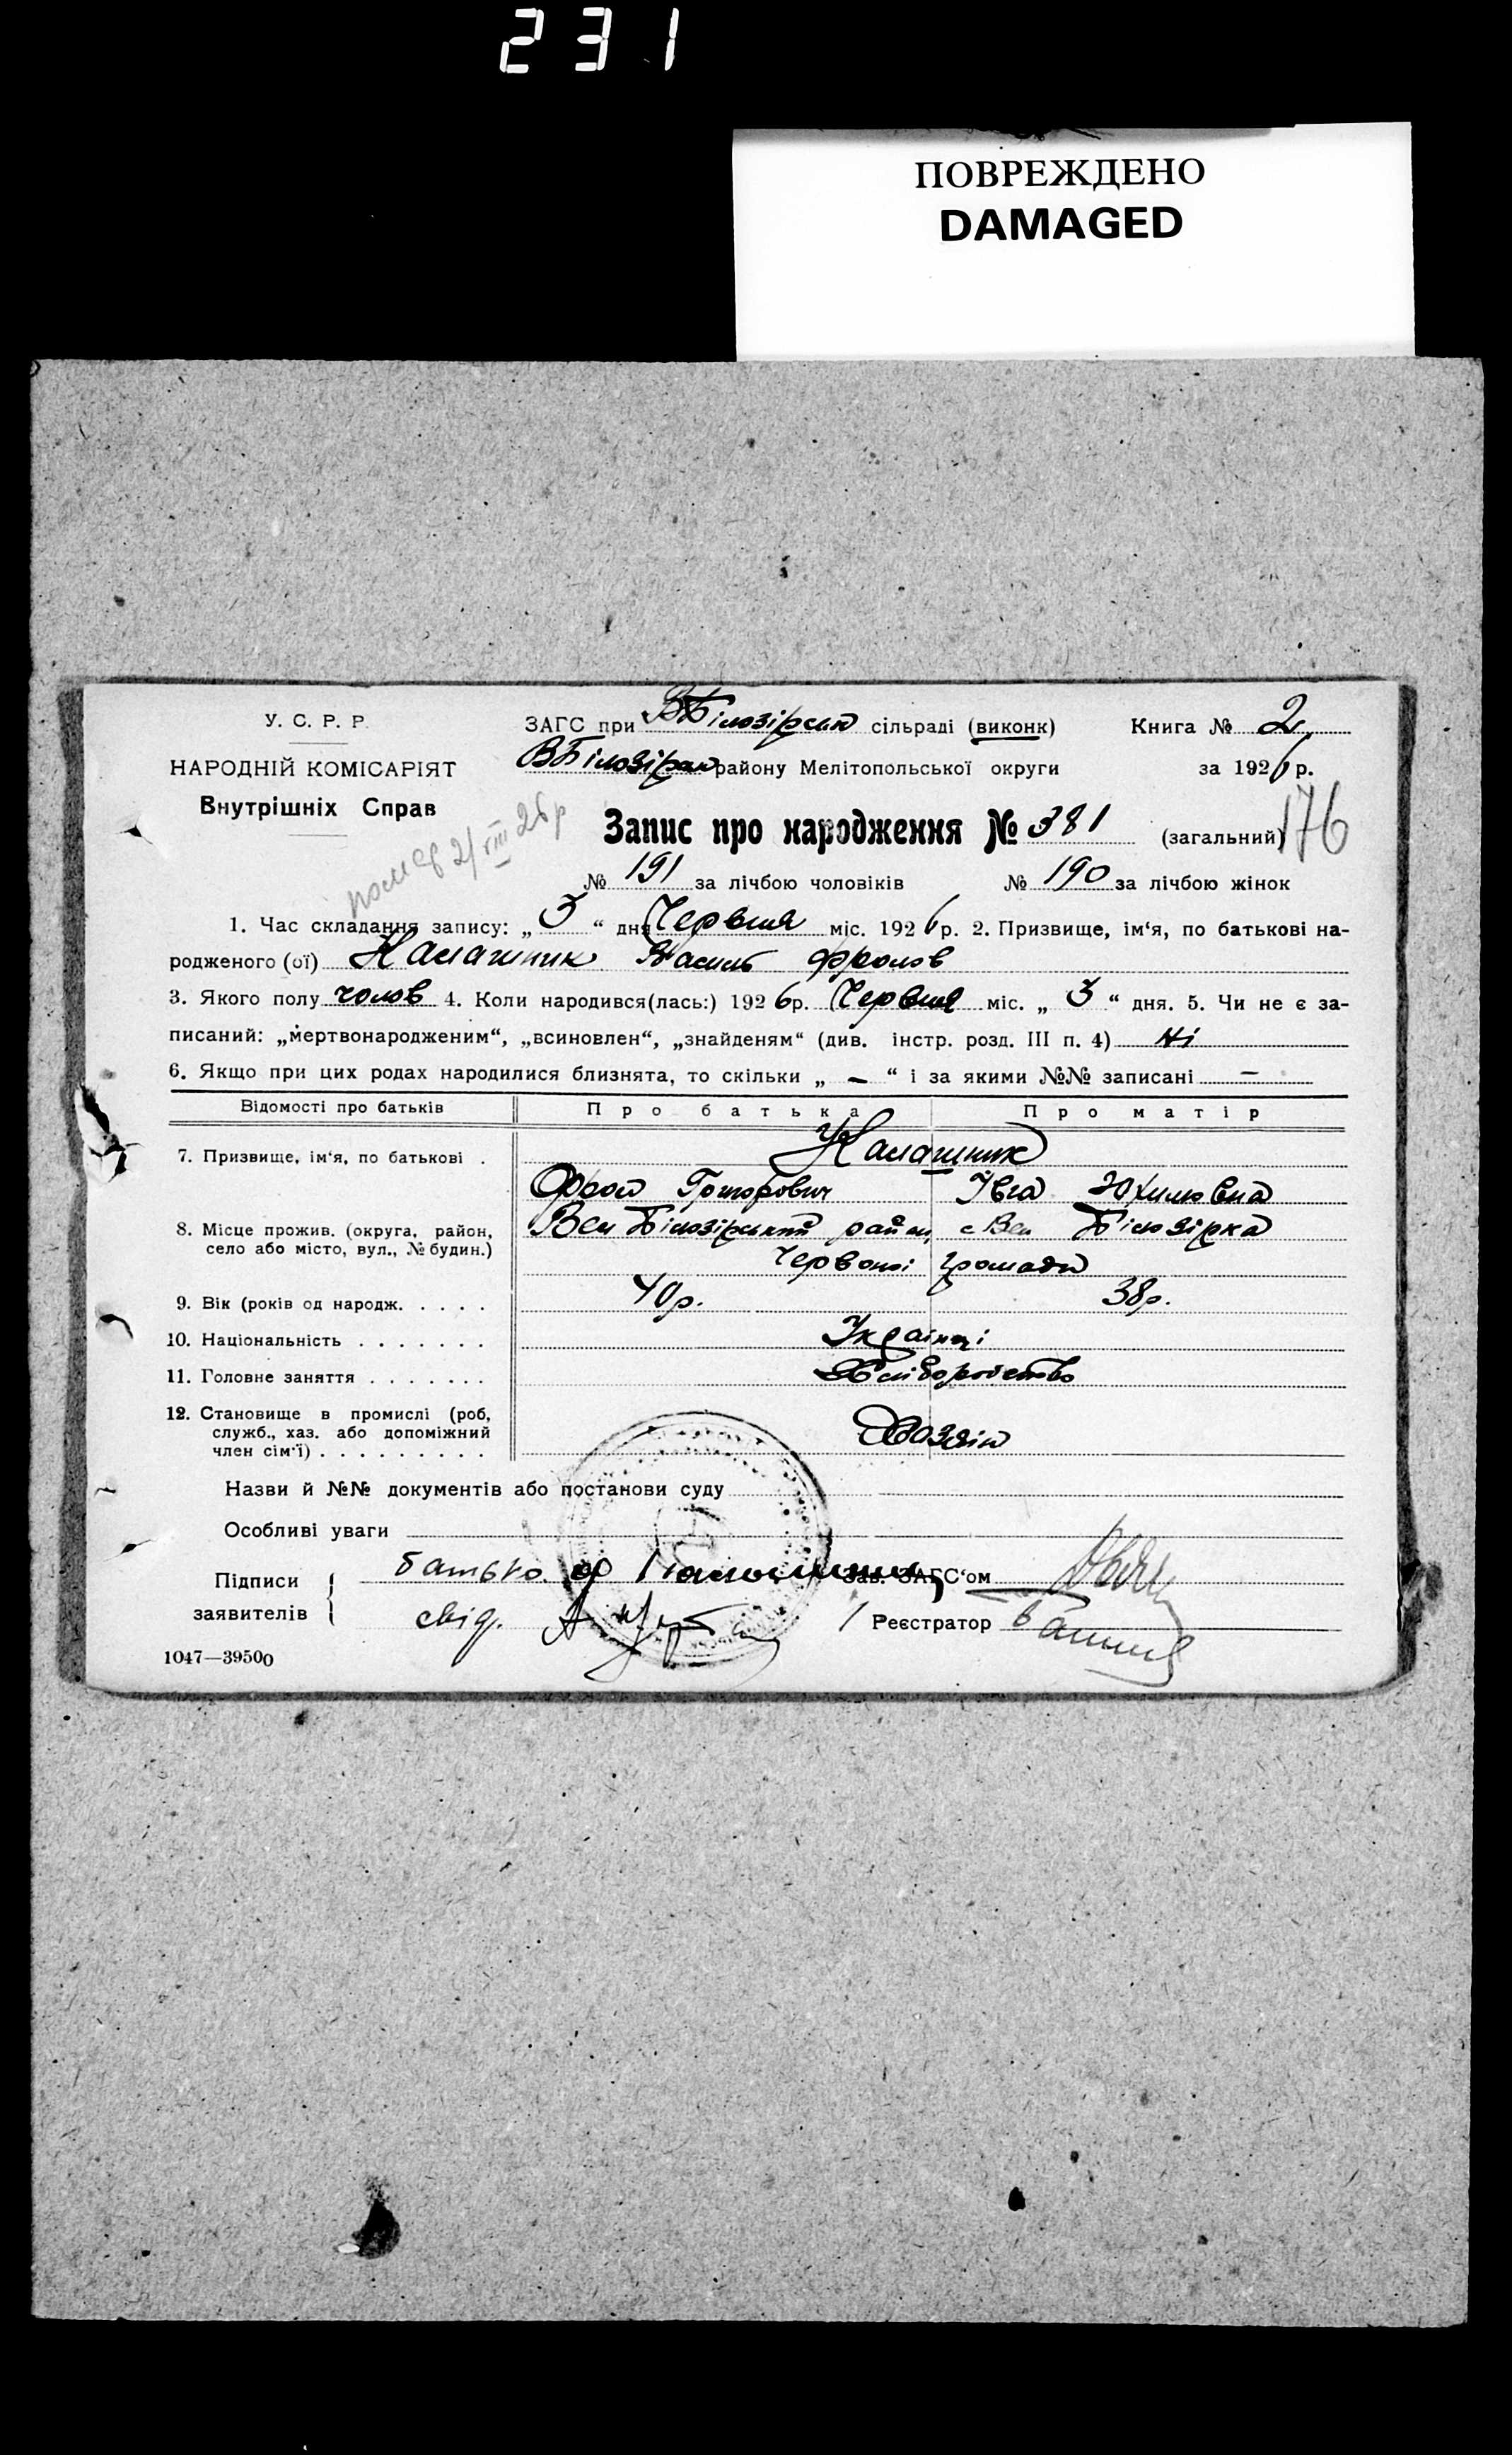 231
ПОВРЕЖДЕНО
DAMAGED
У. С. Р. Р.
НАРОДНІЙ КОМІСАРІЯТ
Внутрішніх Справ
ЗАГС при ВБілозірськ сільраді (виконк)
Книга № 2
ВБілозірськ району Мелітопольської округи
за 1926 р.
Запис про народження № 381 (загальний)
176
2/VIII 26р
№ 191 за лічбою чоловіків № 190 за лічбою жінок
1. Час складання запису: „ 3 “ дня Червня міс. 1926 р. 2. Призвище, ім‘я, по батькові на-
родженого (ої) Калашник Василь Фролов
3. Якого полу чолов 4. Коли народився(лась:) 1926р. Червня міс. „ 3 “ дня. 5. Чи не є за-
писаний: „мертвонародженим“, „всиновлен“, „знайденям“ (див. інстр. розд. III п. 4) Ні
6. Якщо при цих родах народилися близнята, то скільки „ — “ і за якими №№ записані —
Відомості про батьків Про батька Про матір
7. Призвище, ім‘я, по батькові . Калашник
Фрол Григорович Ївга Юхимовна
8. Місце прожив. (округа, район, Вел Білозірський район, с Вел Білозірка
село або місто, вул., № будин.)
Червоної громади
9. Вік (років од народж. . . . . 40р. 38р.
10. Національність . . . . . . . Українці
11. Головне заняття . . . . . . . Хліборобство
12. Становище в промислі (роб,
служб., хаз. або допоміжний Хозяін
член сім‘ї) . . . . . . . . .
Назви й №№ документів або постанови суду
Особливі уваги
Підписи
заявителів
батько Ф Калашник
Зав. ЗАГС‘ом
свід. А
Реєстратор
1047—39500